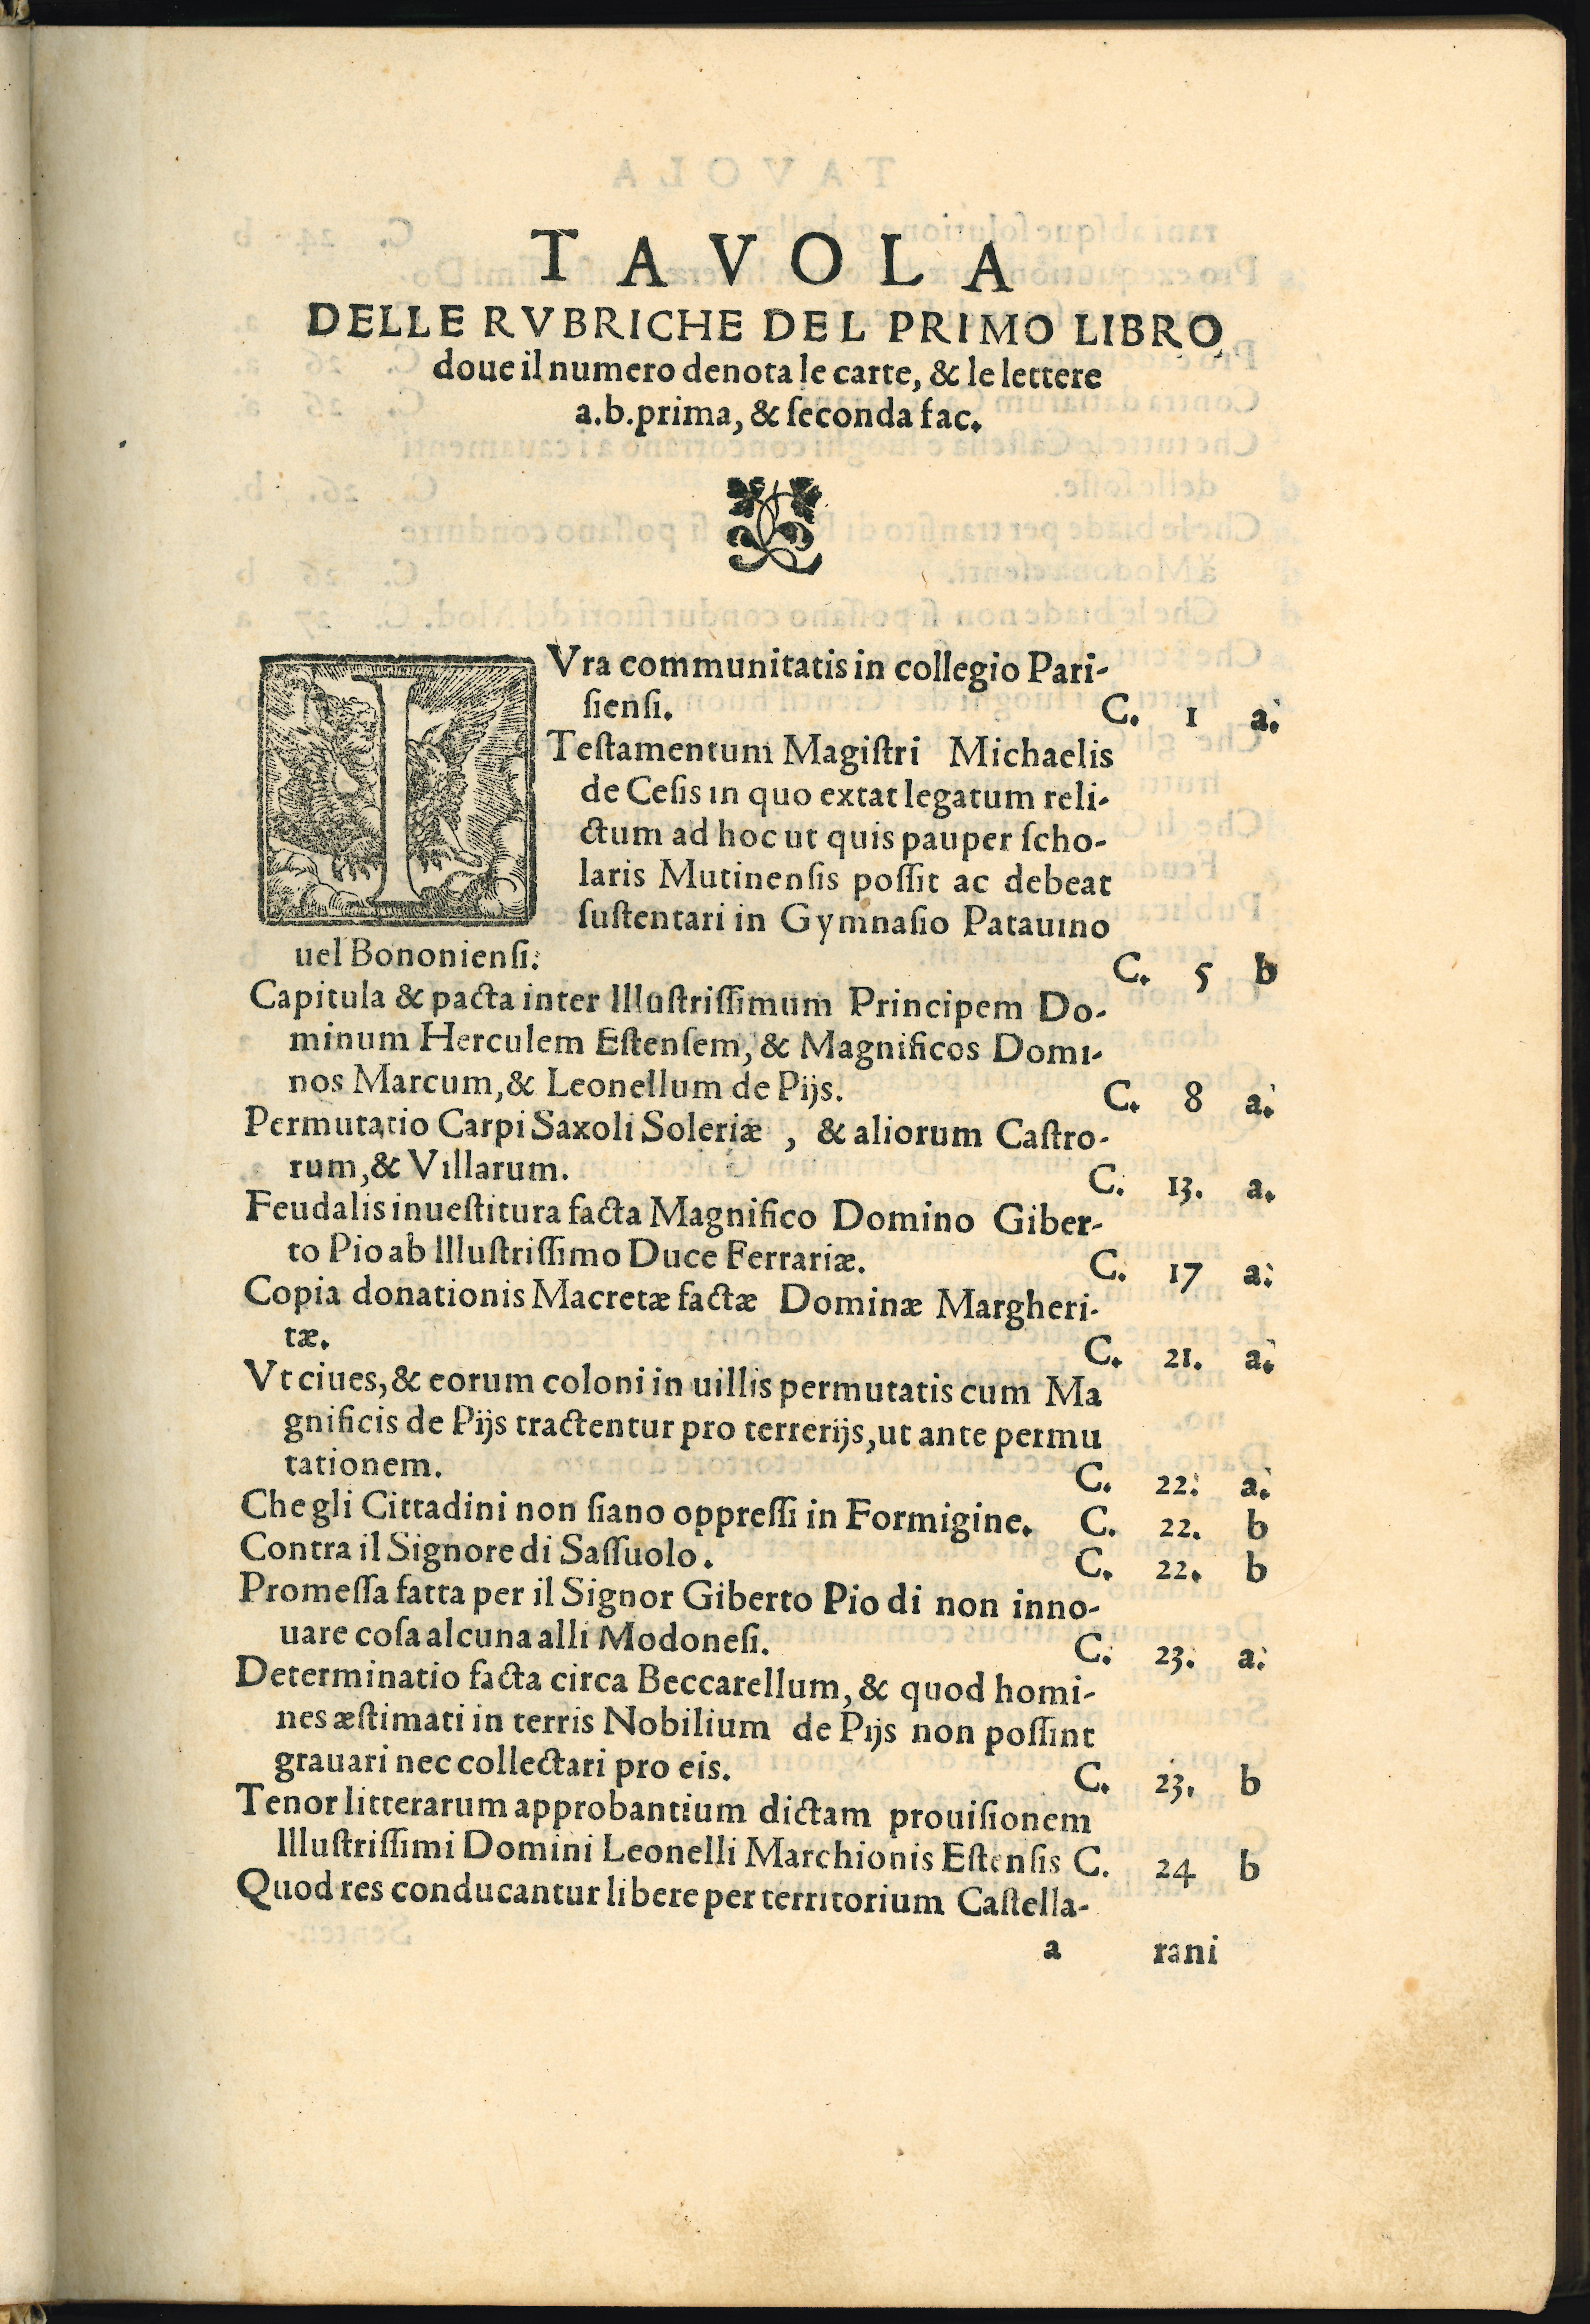 TAVOLA
DELLE RVBRICHE DEL PRIMO LIBRO
doue il numero denota le carte, & le lettere
a.b. prima, & ſeconda fac.
IVra communitatis in collegio Pari-
ſienſi. C. 1 a.
Teſtamentum Magiſtri Michaelis
de Ceſis in quo extat legatum reli-
ctum ad hoc ut quis pauper ſcho-
laris Mutinenſis poſſit ac debeat
ſuſtentari in Gymnaſio Patauino
uel Bononienſi. C. 5 b
Capitula & pacta inter Illuſtriſſimum Principem Do-
minum Herculem Eſtenſem, & Magnificos Domi-
nos Marcum, & Leonellum de Pijs. C. 8 a.
Permutatio Carpi Saxoli Soleriæ , & aliorum Caſtro-
rum, & Villarum. C. 13. a.
Feudalis inueſtitura facta Magnifico Domino Giber-
to Pio ab Illuſtriſſimo Duce Ferrariæ. C. 17 a.
Copia donationis Macretæ factæ Dominæ Margheri-
tæ. C. 21. a.
Vt ciues, & eorum coloni in uillis permutatis cum Ma
gnificis de Pijs tractentur pro terrerijs, ut ante permu
tationem. C. 22. a.
Che gli Cittadini non ſiano oppreſſi in Formigine. C. 22. b
Contra il Signore di Saſſuolo. C. 22. b
Promeſſa fatta per il Signor Giberto Pio di non inno-
uare coſa alcuna alli Modoneſi. C. 23. a.
Determinatio facta circa Beccarellum, & quod homi-
nes æſtimati in terris Nobilium de Pijs non poſſint
grauari nec collectari pro eis. C. 23. b
Tenor litterarum approbantium dictam prouiſionem
Illuſtriſſimi Domini Leonelli Marchionis Eſtenſis C. 24 b
Quod res conducantur libere per territorium Caſtella-
a rani